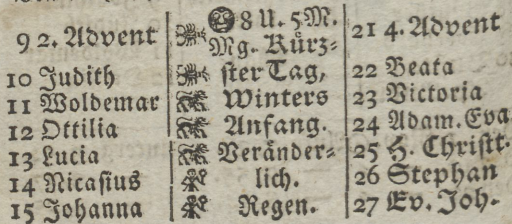 9 2. Advent
10 Judith
11 Woldemar
12 Ottilia
13 Lucia
14 Nicasius
15 Johanna
8 U. 5 M.
Mg. Kürz-
ster Tag,
Winters
Anfang.
Veränder-
lich.
Regen.
21 4. Advent
22 Beata
23 Victoria
24 Adam. Eva
25 H. Christt.
26 Stephan
27 Ev. Joh.